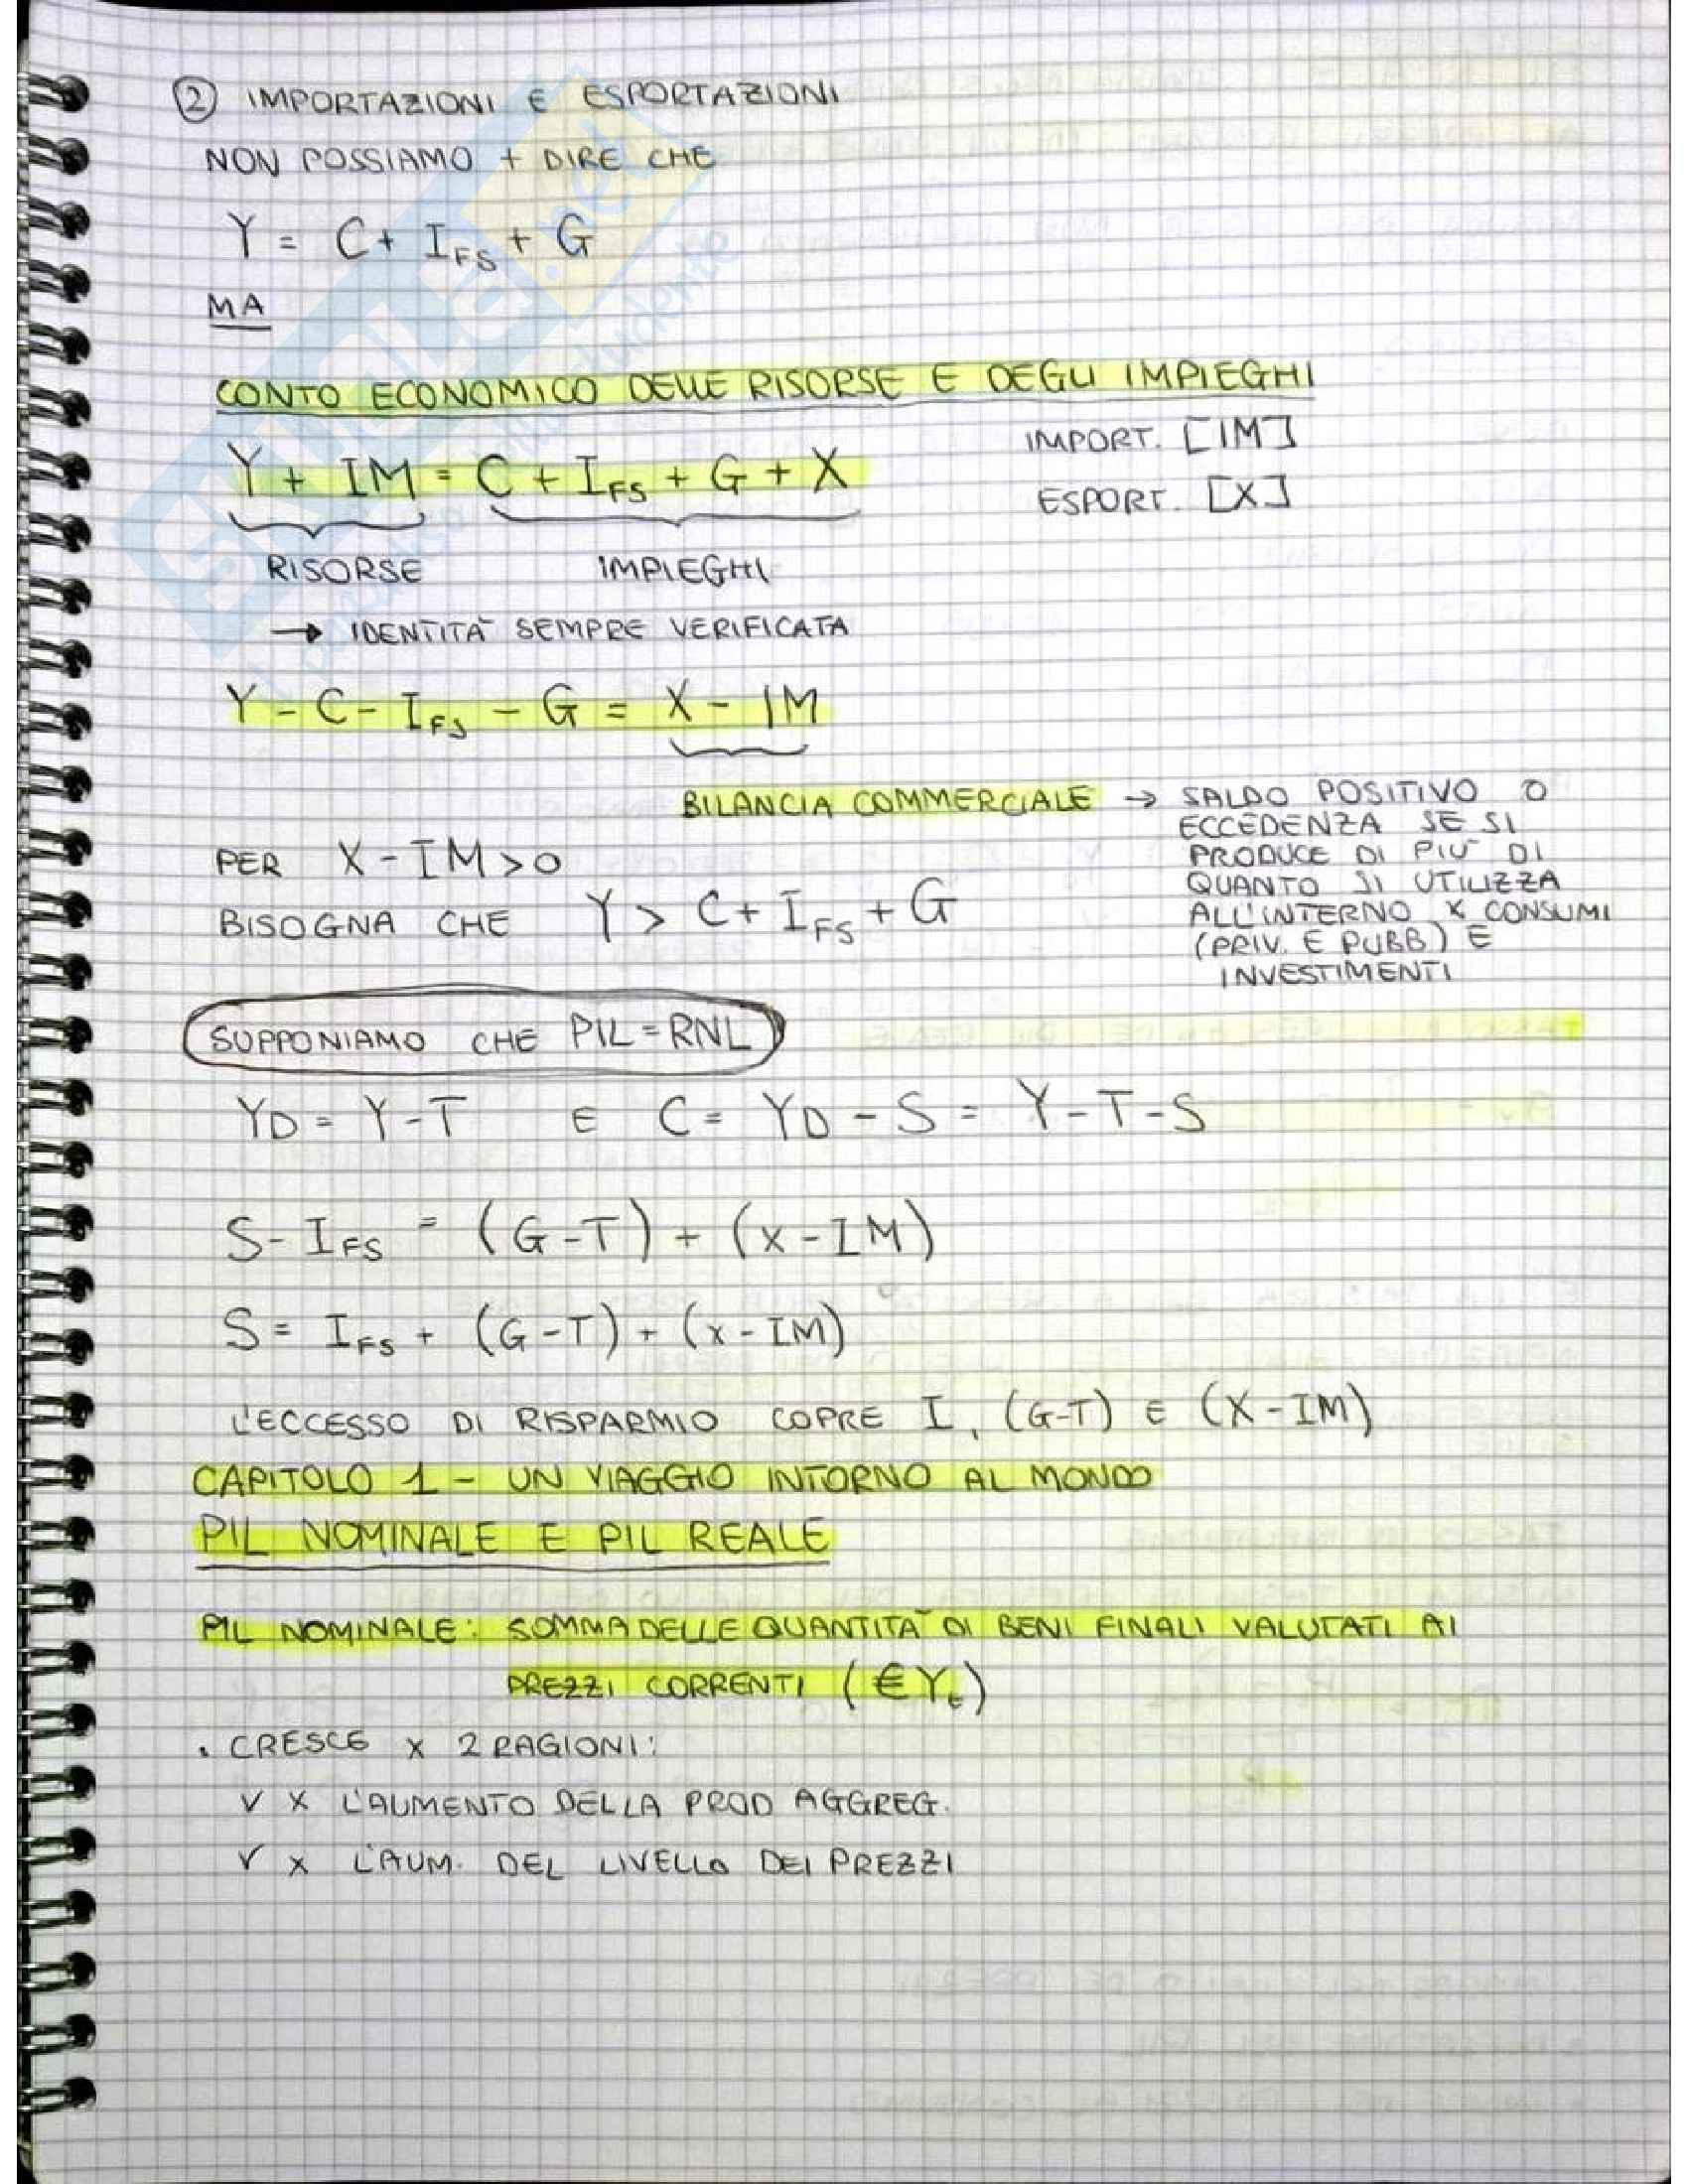 ② IMPORTAZIONI E ESPORTAZIONI
NON POSSIAMO + DIRE CHE
Y = C + I_FS + G
MA
CONTO ECONOMICO DELLE RISORSE E DEGLI IMPIEGHI
Y + IM = C + I_FS + G + X
IMPORT. [IM]
ESPORT. [X]
RISORSE IMPIEGHI
→ IDENTITÀ SEMPRE VERIFICATA
Y - C - I_FS - G = X - IM
BILANCIA COMMERCIALE → SALDO POSITIVO O
ECCEDENZA SE SI
PRODUCE DI PIÙ DI
QUANTO SI UTILIZZA
ALL'INTERNO X CONSUMI
(PRIV. E PUBB) E
INVESTIMENTI
PER X - IM > 0
BISOGNA CHE Y > C + I_FS + G
SUPPONIAMO CHE PIL = RNL
YD = Y - T E C = YD - S = Y - T - S
S - I_FS = (G - T) + (X - IM)
S = I_FS + (G - T) + (X - IM)
L'ECCESSO DI RISPARMIO COPRE I, (G-T) E (X - IM)
CAPITOLO 1 - UN VIAGGIO INTORNO AL MONDO
PIL NOMINALE E PIL REALE
PIL NOMINALE: SOMMA DELLE QUANTITÀ DI BENI FINALI VALUTATI AI
PREZZI CORRENTI (€Y_t)
. CRESCE X 2 RAGIONI:
V X L'AUMENTO DELLA PROD AGGREG.
V X L'AUM. DEL LIVELLO DEI PREZZI